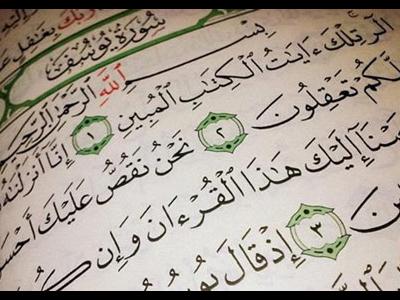 رَبُّكَ بِغَٰفِلٍ
سُورَةُ يُوسُفَ
بِسْمِ ٱللَّهِ ٱلرَّحْمَٰنِ ٱلرَّحِيمِ
الٓر تِلْكَ ءَايَٰتُ ٱلْكِتَٰبِ ٱلْمُبِينِ ١ إِنَّآ أَنزَلْنَٰهُ
لَّكُمْ تَعْقِلُونَ ٢ نَحْنُ نَقُصُّ عَلَيْكَ أَحْسَ
يْنَآ إِلَيْكَ هَٰذَا ٱلْقُرْءَانَ وَإِن كُ
ينَ ٣ إِذْ قَالَ يُو